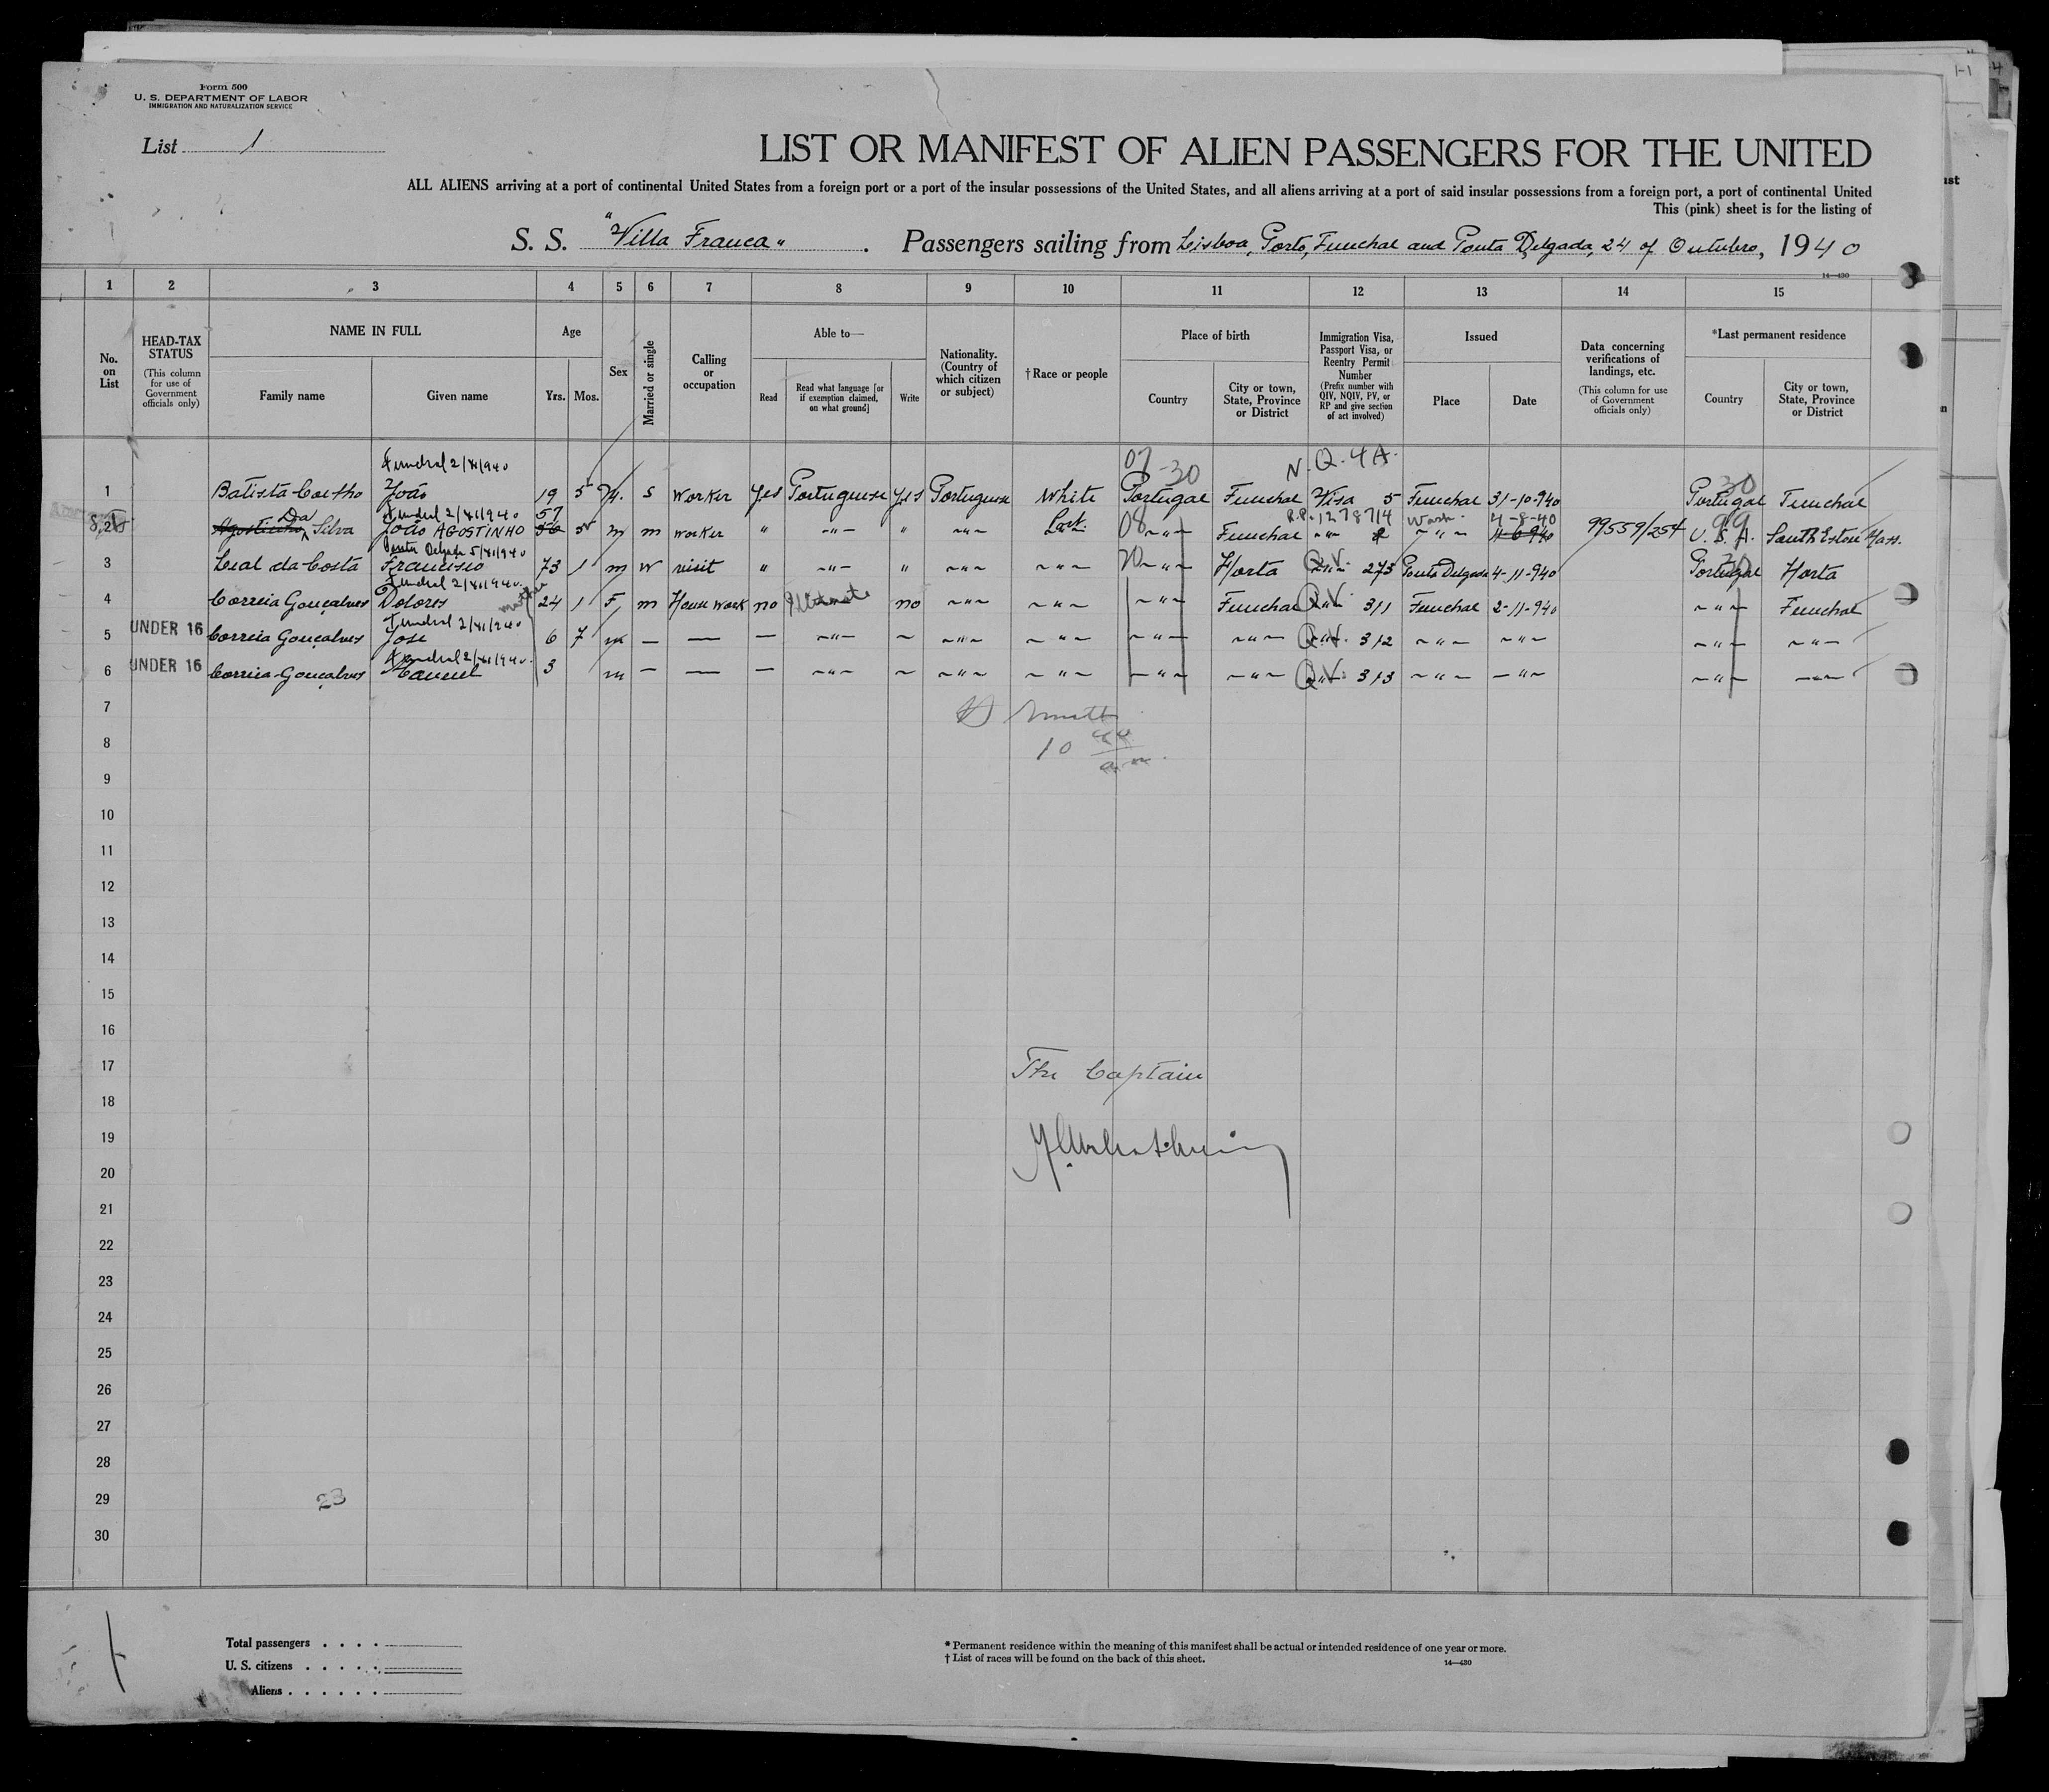 Form 500
U. S. DEPARTMENT OF LABOR
IMMIGRATION AND NATURALIZATION SERVICE
List 1
LIST OR MANIFEST OF ALIEN PASSENGERS FOR THE UNITED
ALL ALIENS arriving at a port of continental United States from a foreign port or a port of the insular possessions of the United States, and all aliens arriving at a port of said insular possessions from a foreign port, a port of continental United
This (pink) sheet is for the listing of
S. S. "Villa Franca" . Passengers sailing from Lisboa, Porto, Funchal and Ponta Delgada, 24 of Outubro, 1940
14—430
1 2 3 4 5 6 7 8 9 10 11 12 13 14 15
No. on List
HEAD-TAX STATUS (This column for use of Government officials only)
NAME IN FULL
Family name Given name
Age
Yrs. Mos.
Sex
Married or single
Calling or occupation
Able to—
Read Read what language [or if exemption claimed, on what ground] Write
Nationality. (Country of which citizen or subject)
† Race or people
Place of birth
Country City or town, State, Province or District
Immigration Visa, Passport Visa, or Reentry Permit Number (Prefix number with QIV, NQIV, PV, or RP and give section of act involved)
Issued
Place Date
Data concerning verifications of landings, etc. (This column for use of Government officials only)
*Last permanent residence
Country City or town, State, Province or District
Funchal 2/XI/940 07-30 N.Q. 4A.
1 Batista Coelho João 19 5 M. S worker yes Portuguese yes Portuguese White Portugal Funchal Visa 5 Funchal 31-10-940 Portugal Funchal
Da Funchal 2/XI/940 57 R.P. 1278714 Wash. 4-8-40
2 Agostinho Silva João AGOSTINHO 56 5 m m worker " -"- " -"- 08 -"- Funchal -"- -"- 11-6-940 99559/254 U.S.A. Mass.
Ponta Delgada 5/XI/940
3 Leal da Costa Francisco 73 1 m w visit " -"- " -"- -"- -"- Horta QV 273 Ponta Delgada 4-11-940 Portugal Horta
Funchal 2/XI/940
4 Correia Gonçalves Dolores mother 24 1 F. m House work no no -"- -"- -"- Funchal QV 311 Funchal 2-11-940 -"- Funchal
Funchal 2/XI/940
UNDER 16
5 Correia Gonçalves José 6 7 m — — — -"- - -"- -"- -"- -"- QV 312 -"- -"- -"- -"-
Funchal 2/XI/940
UNDER 16
6 Correia Gonçalves Manuel 3 m — — — -"- - -"- -"- -"- -"- QV 313 -"- -"- -"- -"-
7
8 10
9
10
11
12
13
14
15
16
17 The Captain
18
19
20
21
22
23
24
25
26
27
28
29 23
30
Total passengers . . . .
U. S. citizens . . . . .
Aliens . . . . . .
* Permanent residence within the meaning of this manifest shall be actual or intended residence of one year or more.
† List of races will be found on the back of this sheet.
14—430